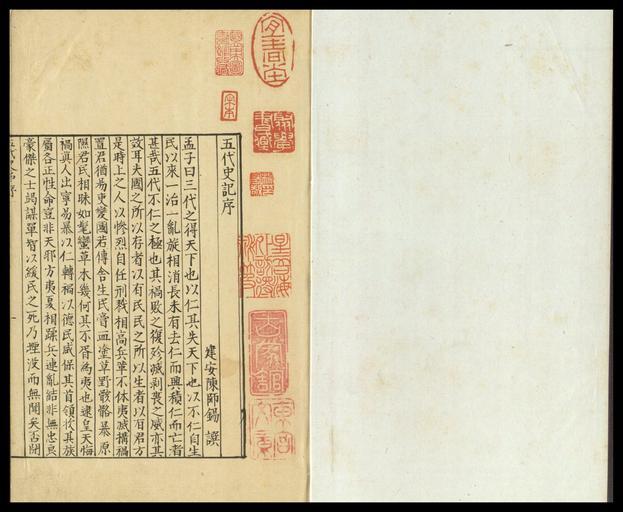 五代史記序
建安陳師錫 撰
孟子曰三代之得天下也以仁其失天下也以不仁自生
民以來一治一亂旋相消長未有去仁而興積仁而亡者
甚哉五代不仁之極也其禍敗之復殄滅剥喪之威亦其
效耳夫國之所以存者以有民民之所以生者以有君方
是時上之人以慘烈自任刑戮相高兵革不休夷滅構禍
置君猶易吏變國若傳舍生民膏血塗草野骸骼暴原
隰君民相眎如髦蠻草木幾何其不胥為夷也逮皇天悔
禍真人出寧易暴以仁轉禍以德民咸保其首領收其族
屬各正性命豈非天邪方夷夏相蹂兵連亂結非無忠良
豪傑之士竭謀單智以緩民之死乃堙沒而無聞矣否閉
宋本